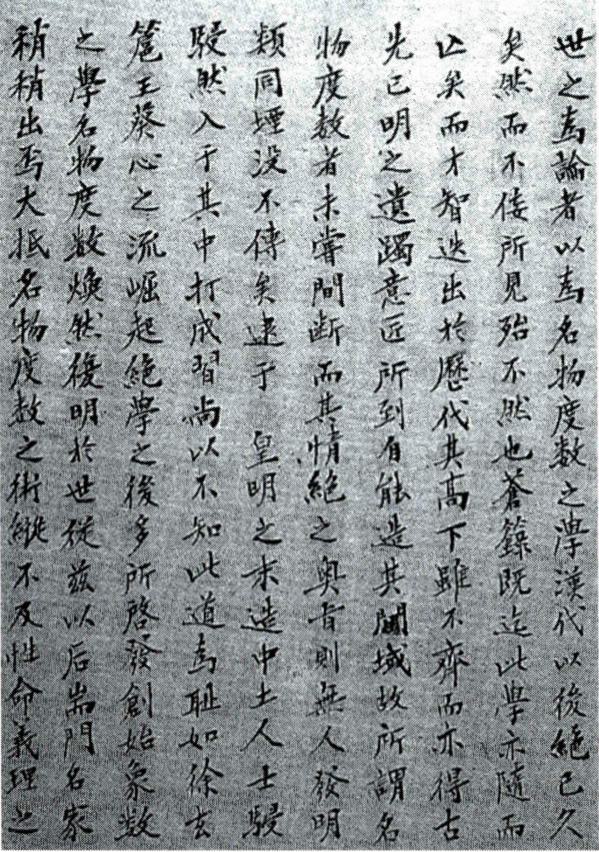 世之爲論者以爲名物度數之學漢代以後絕已久
矣然而不佞所見殆不然也蒼籙既迄此學亦隨而
亡矣而才智迭出於歷代其高下雖不齊而亦得古
先已明之遺躅意匠所到自能造其閫域故所謂名
物度數者未嘗間斷而其情絕之奧旨則無人發明
類同堙没不傳矣逮于 皇明之末造中土人士駸
駸然入于其中打成習尚以不知此道爲耻如徐玄
扈王葵心之流崛起絕學之後多所啓發創始象數
之學名物度數煥然復明於世從玆以后耑門名家
稍稍出焉大抵名物度數之術縱不及性命義理之